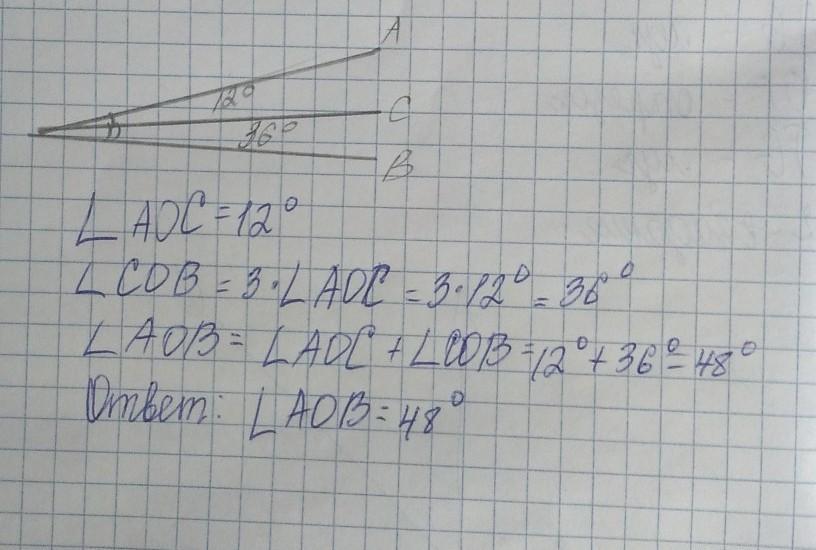 A
12°
C
36°
B
∠AOC = 12°
∠COB = 3·∠AOC = 3·12° = 36°
∠AOB = ∠AOC + ∠COB = 12° + 36° = 48°
Ответ: ∠AOB = 48°